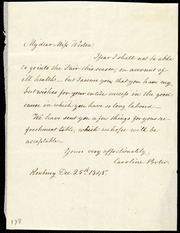 My dear Miss Weston
I fear I shall not be able
to join the Fair this season, on account of
ill health – but I assure you that you have my
best wishes for your entire success in the good
cause in which you have so long labored –
We have sent you a few things for your re-
freshment table, which we hope will be
acceptable.
Yours very affectionately
Caroline
Roxbury Dec. 25th 1845.